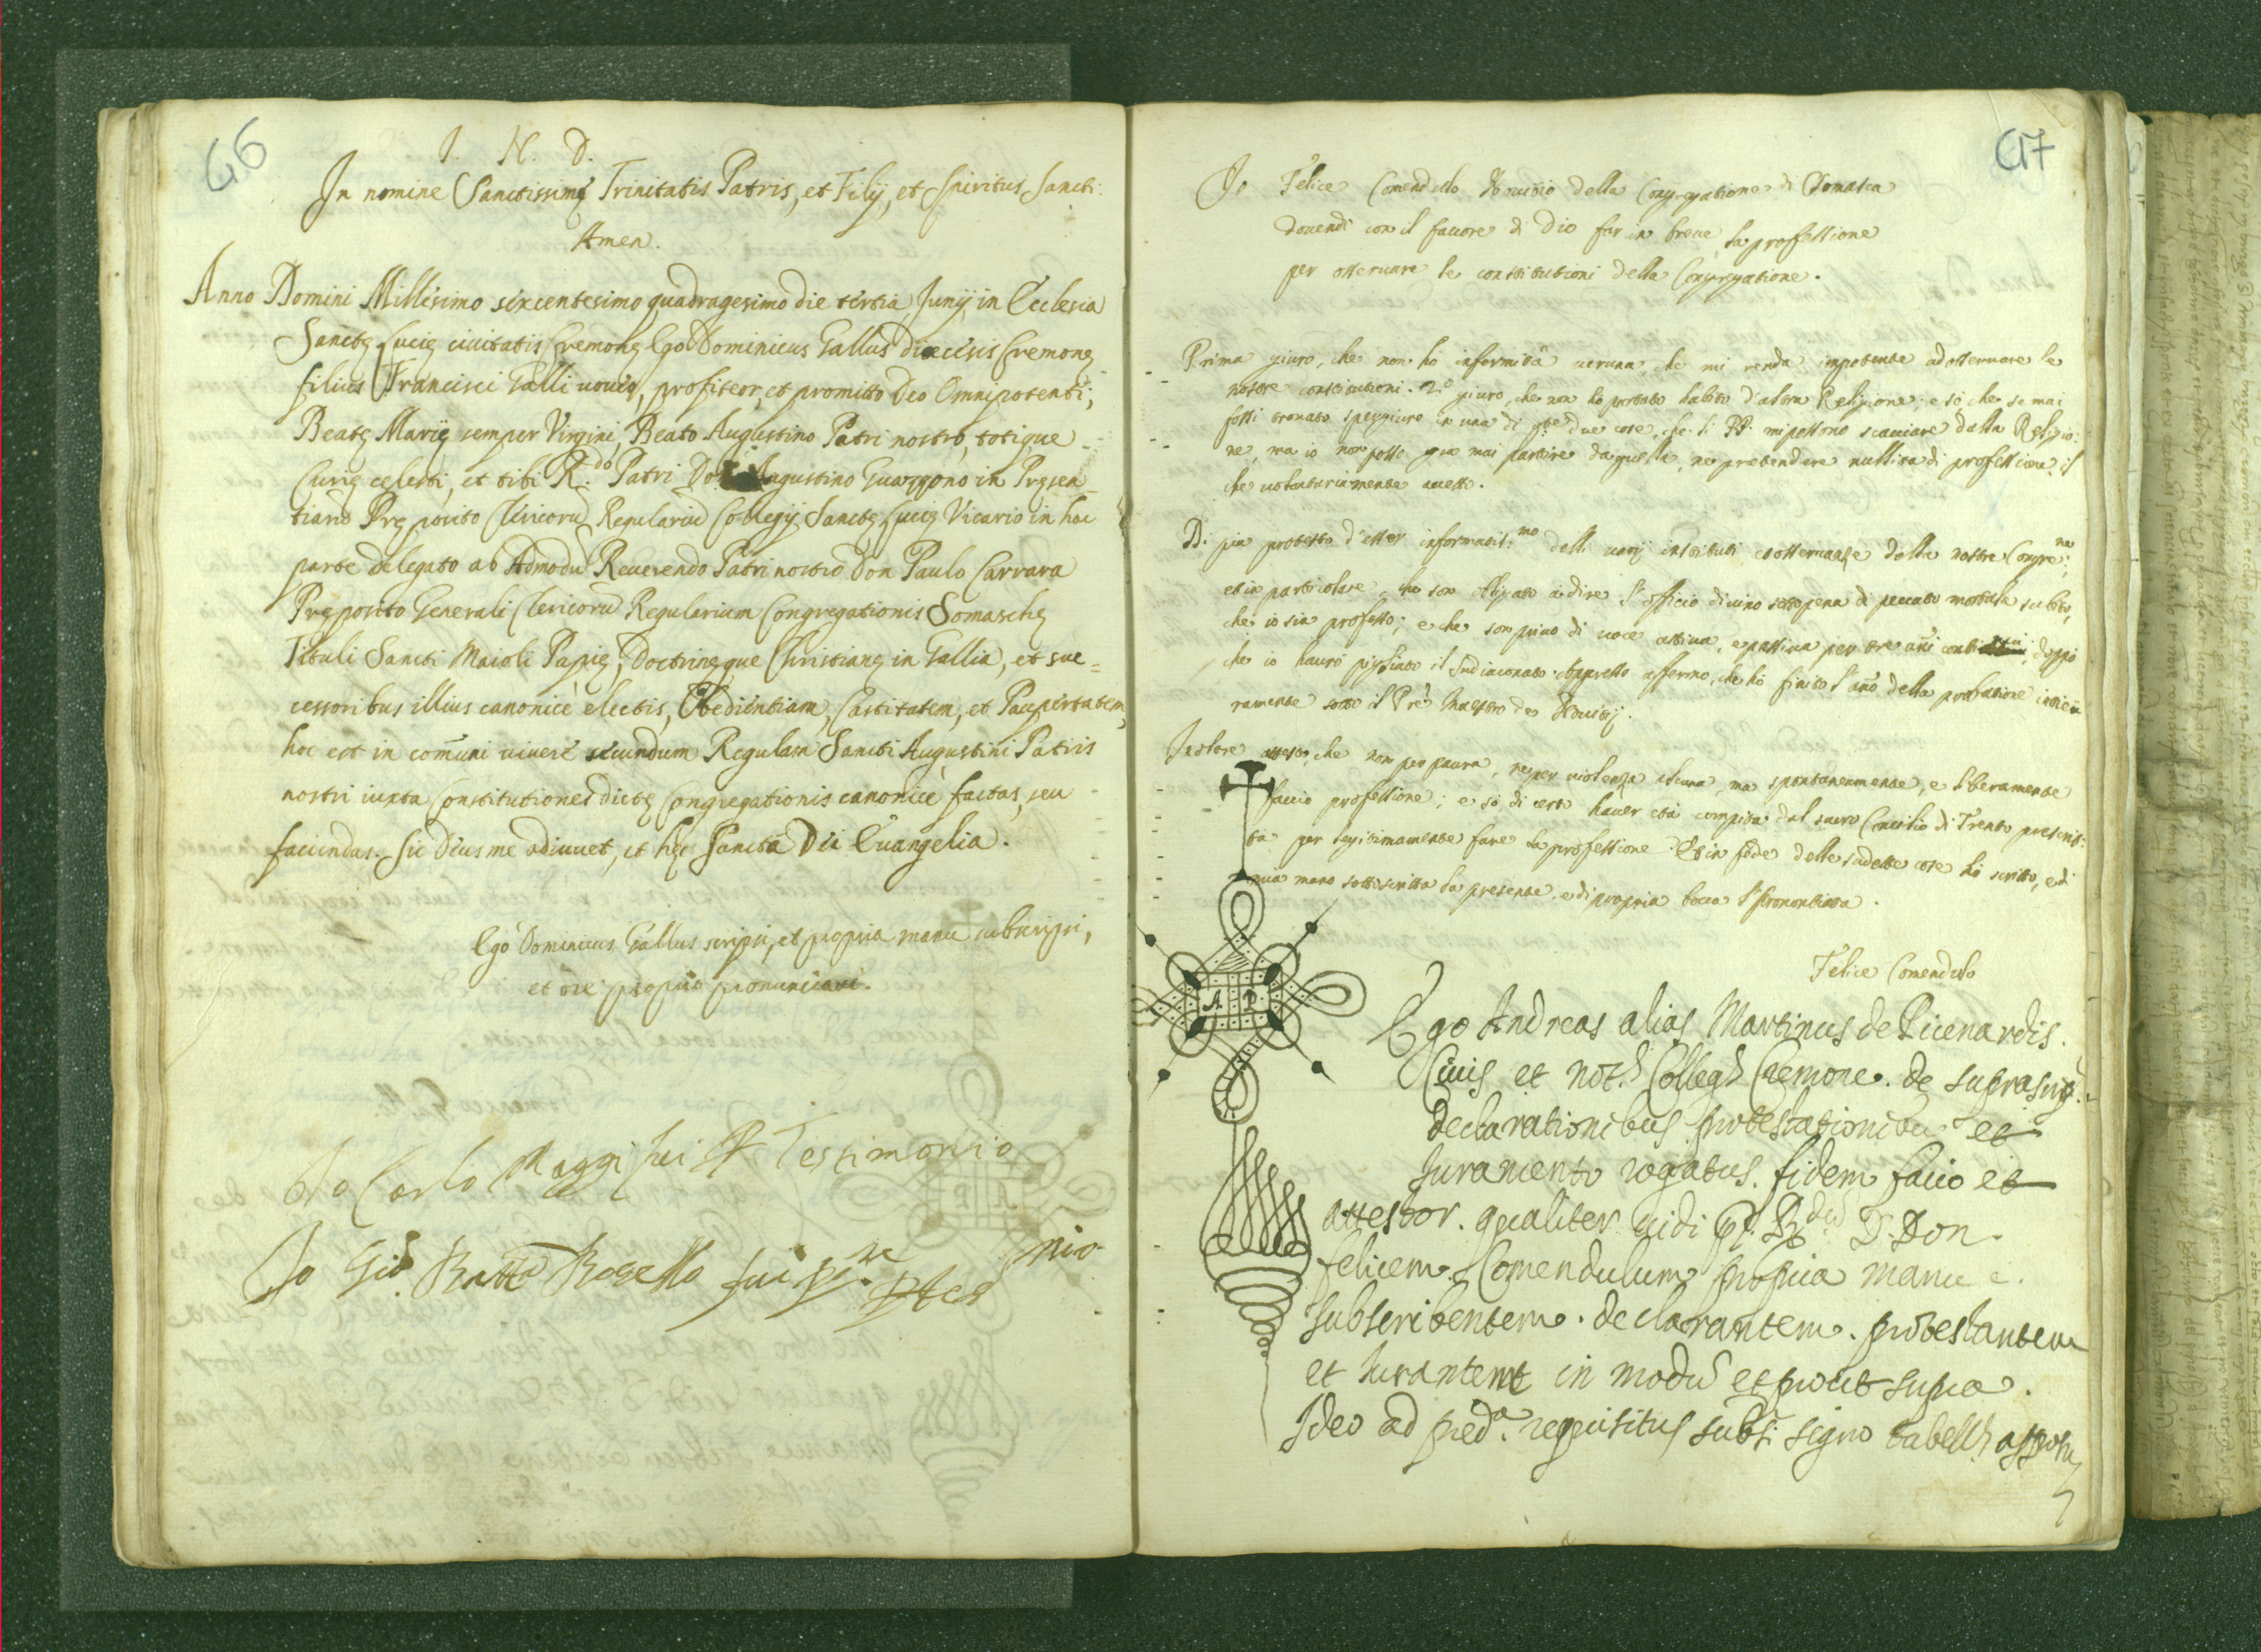 46
I. N. D.
In nomine Sanctissimę Trinitatis Patris, et Filij, et Spiritus Sancti.
Amen.
Anno Domini Millesimo sexcentesimo quadragesimo die tertia Junij in Ecclesia
Sanctę Lucię ciuitatis Cremonę Ego Dominicus Gallus diœcesis Cremonę
filius Francisci Galli voueo, profiteor, et promitto Deo Omnipotenti,
Beatę Marię semper Virgini, Beato Augustino Patri nostro, totique
Curię celesti, et tibi R.do Patri Don Augustino Guazzono in Pręsen-
tiarũ Pręposito Clericorũ Regulariũ Collegij Sanctę Lucię Vicario in hac
parte delegato ab Admodũ Reuerendo Patri nostro Don Paulo Carrara
Pręposito Generali Clericorũ Regularium Congregationis Somaschę
Tituli Sancti Maioli Papię, Doctrinęque Christianę in Gallia, et suc=
cessoribus illius canonicè electis, Obedientiam, Castitatem, et Paupertatem,
hoc est in comũni uiuere secundum Regulam Sancti Augustini Patris
nostri iuxta Constitutiones dictę Congregationis canonicè factas, seu
faciendas. Sic Deus me adiuuet, et hęc Sancta Dei Euangelia.
Ego Dominicus Gallus scripsi, et propria manu subscripsi,
et ore proprio pronunciaui.
Io Carlo Maggi fui P Testimonio
Io Gio. Batta Rosello fui pñte p tes nio
47
Io Felice Comendulo Nouitio della Congregatione di Somasca
douendi con il fauore di Dio far in breue la professione
per osseruare le constitutioni della Congregatione.
Prima giuro, che non hò infermità ueruna, che mi renda impotente ad osseruare le
nostre constitutioni. 2.o giuro, che non ho portato habito d'altra Religione; e sò che se mai
fossi trouato spergiuro in una di q̃ste due cose, che li PP. mi possono scacciare dalla Religio:
ne, ma io non posso gia mai partire da questa, ne pretendere nullità di professione: il
che uolontariamente accetto.
D. più protesto d'esser informatiss:mo delli uarij instituti et osseruanze della nostra Congre:ne,
et in particolare, che son obligato à dire l'officio diuino sotto pena di peccato mortale subito,
che io sia professo; e che son priuo di uoce attiua, e passiua per tre anni continui, doppo
che io hauro pigliato il Sudiaconato. Appresso affermo, che hò finito l'año della probatione intiera
ramente sotto il Prẽ Maestro de Nouitij.
In oltre attesto, che non per paura, ne per uiolenza alcuna, ma spontaneamente, e liberamente
faccio professione; e sò di certo hauer età compita dal sacro Concilio di Trento prescrit:
ta per legitimamente fare la professione. Et in fede delle sudette cose hò scritto, e di
mia mano sottoscritta la presente, e di propria bocca l'prononciata.
Felice Comendulo
A P
Ego Andreas alias Martinus de Picenardis.
Ciuis et not.s Colleg.s Cremone. de suprascrip.
declarationibus protestationibus et
Juramento rogatus. fidem facio et
attestor. qualiter uidi pf. R.dum D. Don
felicem Comendulum propria manu
subscribentem. declarantem. protestantem
et Jurantem in modũ et prout supra.
Ideo ad pred.a requisitus subs. signo tabell. apposui